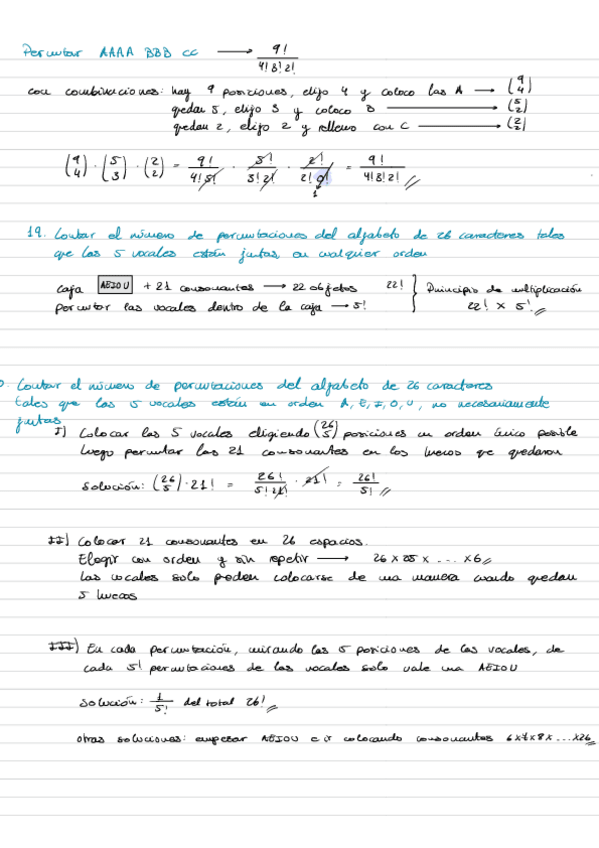 Permutar AAAA BBB CC → 9! / 4! 3! 2!
con combinaciones: hay 9 posiciones, elijo 4 y coloco las A → (9 4)
quedan 5, elijo 3 y coloco B → (5 2)
quedan 2, elijo 2 y relleno con C → (2 2)
(9 4) · (5 3) · (2 2) = 9! / 4! 5! · 5! / 3! 2! · 2! / 2! 0! = 9! / 4! 3! 2!
1
19. Contar el número de permutaciones del alfabeto de 26 caracteres tales
que las 5 vocales están juntas, en cualquier orden
caja AEIOU + 21 consonantes → 22 objetos 22! } Principio de multiplicación
permutar las vocales dentro de la caja → 5! 22! × 5!
Contar el número de permutaciones del alfabeto de 26 caracteres
tales que las 5 vocales están en orden A, E, I, O, U, no necesariamente
juntas
I) Colocar las 5 vocales eligiendo (26 5) posiciones en orden único posible
luego permutar las 21 consonantes en los huecos que quedaron
Solución: (26 5) · 21! = 26! / 5! 21! · 21! = 26! / 5!
II) Colocar 21 consonantes en 26 espacios.
Elegir con orden y sin repetir → 26 × 25 × ... × 6
las vocales solo pueden colocarse de una manera cuando quedan
5 huecos
III) En cada permutación, mirando las 5 posiciones de las vocales, de
cada 5! permutaciones de las vocales solo vale una AEIOU
Solución: 1 / 5! del total 26!
otras soluciones: empezar AEIOU e ir colocando consonantes 6×7×8× ... ×26